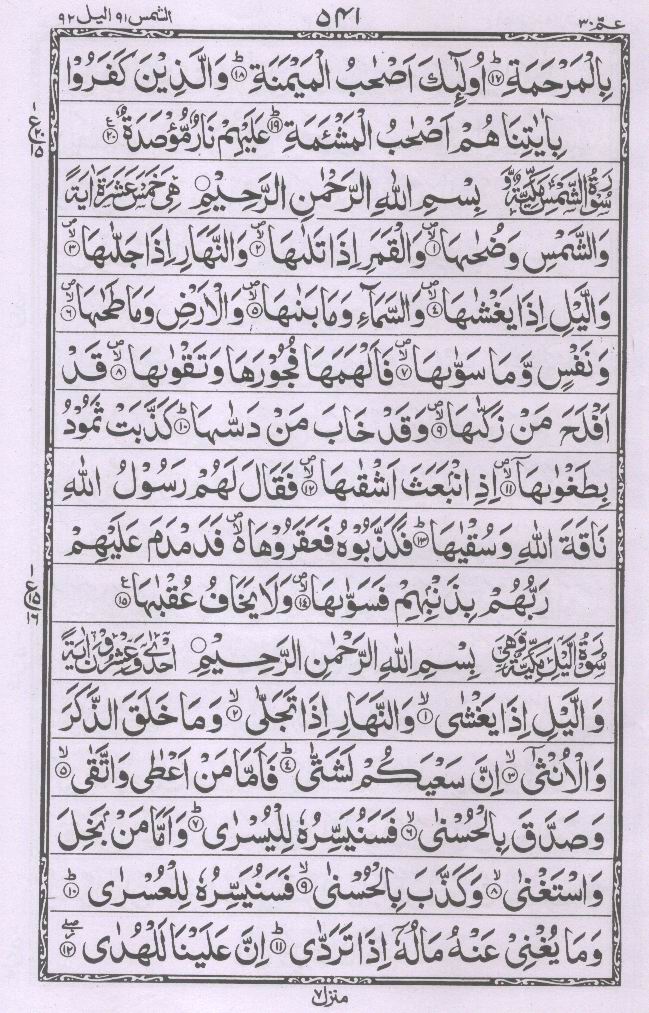 عمّ ٣٠ ۵۴۱ الشمس ٩١ الیل ٩٢
بِالْمَرْحَمَةِ ؕ‏﴿۱۷﴾ اُولٰٓئِكَ اَصْحٰبُ الْمَيْمَنَةِ ؕ‏﴿۱۸﴾ وَالَّذِيْنَ كَفَرُوْا
بِاٰيٰتِنَا هُمْ اَصْحٰبُ الْمَشْئَمَةِ ؕ‏﴿۱۹﴾ عَلَيْهِمْ نَارٌ مُّؤْصَدَةٌ ‏﴿۲۰﴾ ع
سُوْرَةُ الشَّمْسِ مَكِّيَّةٌ وَّ بِسْمِ اللّٰهِ الرَّحْمٰنِ الرَّحِيْمِ ○ هِيَ خَمْسَ عَشَرَةَ اٰيَةً
وَالشَّمْسِ وَضُحٰىهَا ﴿۱﴾ وَالْقَمَرِ اِذَا تَلٰىهَا ﴿۲﴾ وَالنَّهَارِ اِذَا جَلّٰىهَا ﴿۳﴾
وَالَّيْلِ اِذَا يَغْشٰىهَا ﴿۴﴾ وَالسَّمَآءِ وَمَا بَنٰىهَا ﴿۵﴾ وَالْاَرْضِ وَمَا طَحٰىهَا ﴿۶﴾
وَنَفْسٍ وَّمَا سَوّٰىهَا ﴿۷﴾ فَاَلْهَمَهَا فُجُوْرَهَا وَتَقْوٰىهَا ﴿۸﴾ قَدْ
اَفْلَحَ مَنْ زَكّٰىهَا ﴿۹﴾ وَقَدْ خَابَ مَنْ دَسّٰىهَا ؕ﴿۱۰﴾ كَذَّبَتْ ثَمُوْدُ
بِطَغْوٰىهَاۤ ﴿۱۱﴾ اِذِ انْۢبَعَثَ اَشْقٰىهَا ﴿۱۲﴾ فَقَالَ لَهُمْ رَسُوْلُ اللّٰهِ
نَاقَةَ اللّٰهِ وَسُقْيٰهَا ؕ﴿۱۳﴾ فَكَذَّبُوْهُ فَعَقَرُوْهَا فَدَمْدَمَ عَلَيْهِمْ
رَبُّهُمْ بِذَنْۢبِهِمْ فَسَوّٰىهَا ﴿۱۴﴾ وَلَا يَخَافُ عُقْبٰهَا ﴿۱۵﴾ ع
سُوْرَةُ الَّيْلِ مَكِّيَّةٌ وَّهِيَ بِسْمِ اللّٰهِ الرَّحْمٰنِ الرَّحِيْمِ ○ اِحْدٰى وَعِشْرُوْنَ اٰيَةً
وَالَّيْلِ اِذَا يَغْشٰى ۙ﴿۱﴾ وَالنَّهَارِ اِذَا تَجَلّٰى ۙ﴿۲﴾ وَمَا خَلَقَ الذَّكَرَ
وَالْاُنْثٰٓى ۙ﴿۳﴾ اِنَّ سَعْيَكُمْ لَشَتّٰى ؕ﴿۴﴾ فَاَمَّا مَنْ اَعْطٰى وَاتَّقٰى ۙ﴿۵﴾
وَصَدَّقَ بِالْحُسْنٰى ۙ﴿۶﴾ فَسَنُيَسِّرُهٗ لِلْيُسْرٰى ؕ﴿۷﴾ وَاَمَّا مَنْۢ بَخِلَ
وَاسْتَغْنٰى ۙ﴿۸﴾ وَكَذَّبَ بِالْحُسْنٰى ۙ﴿۹﴾ فَسَنُيَسِّرُهٗ لِلْعُسْرٰى ؕ﴿۱۰﴾
وَمَا يُغْنِيْ عَنْهُ مَالُهٗۤ اِذَا تَرَدّٰى ؕ﴿۱۱﴾ اِنَّ عَلَيْنَا لَلْهُدٰى ﴿۱۲﴾
منزل ٧